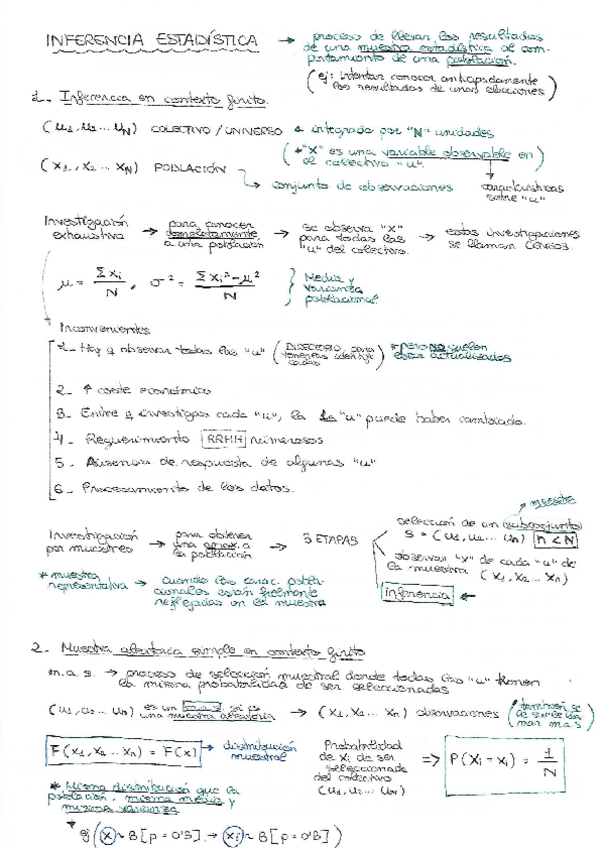 INFERENCIA ESTADÍSTICA → proceso de llevar los resultados
de una muestra estadística al com-
portamiento de una población.
(ej: intentar conocer anticipadamente
los resultados de unas elecciones)
1_ Inferencia en contexto finito.
(u1, u2 ... uN) COLECTIVO / UNIVERSO ← integrado por "N" unidades
(* "X" es una variable observable en
el colectivo "u".)
(x1, x2 ... xN) POBLACIÓN
→ conjunto de observaciones
características
sobre "u"
Investigación → para conocer → se observa "X" → estas investigaciones
exhaustiva completamente para todas las se llaman CENSOS.
a una población "u" del colectivo.
μ = Σxi / N , σ² = Σxi² - μ² / N } Media y
varianza
poblacional
Inconvenientes
1_ Hay q observar todas las "u" (DIRECTORIO, para * pero NO suelen
tenerlas identifi- estar actualizados
cadas)
2_ ↑ coste económico
3_ Entre q investigas cada "u", la 1a "u" puede haber cambiado.
4_ Requerimiento RRHH numerosos
5_ Ausencia de respuesta de algunas "u"
6_ Procesamiento de los datos.
muestra
Investigación → para obtener → 3 ETAPAS
por muestreo una aprox. a
la población
selección de un subconjunto
S = (u1, u2 ... un) n < N
observar "X" de cada "u" de
la muestra (x1, x2 ... xn)
inferencia ←
* muestra → cuando las carac. pobla-
representativa cionales están fielmente
reflejadas en la muestra
2_ Muestra aleatoria simple en contexto finito
m.a.s. → proceso de selección muestral donde todas las "u" tienen
la misma probabilidad de ser seleccionadas
(u1, u2 ... un) es un
una muestra aleatoria → (x1, x2 ... xn) observaciones (también se
le suele
mar m.a.s)
F(x1, x2 ... xn) = F(x) → distribución
muestral
Probabilidad
de xi de ser
seleccionada
del colectivo
(u1, u2 ... uN)
⇒ P(Xi = xi) = 1/N
* Misma distribución que la
población, misma media y
misma varianza
ej (X ~ B[p = 0'3] → xi ~ B[p = 0'3])